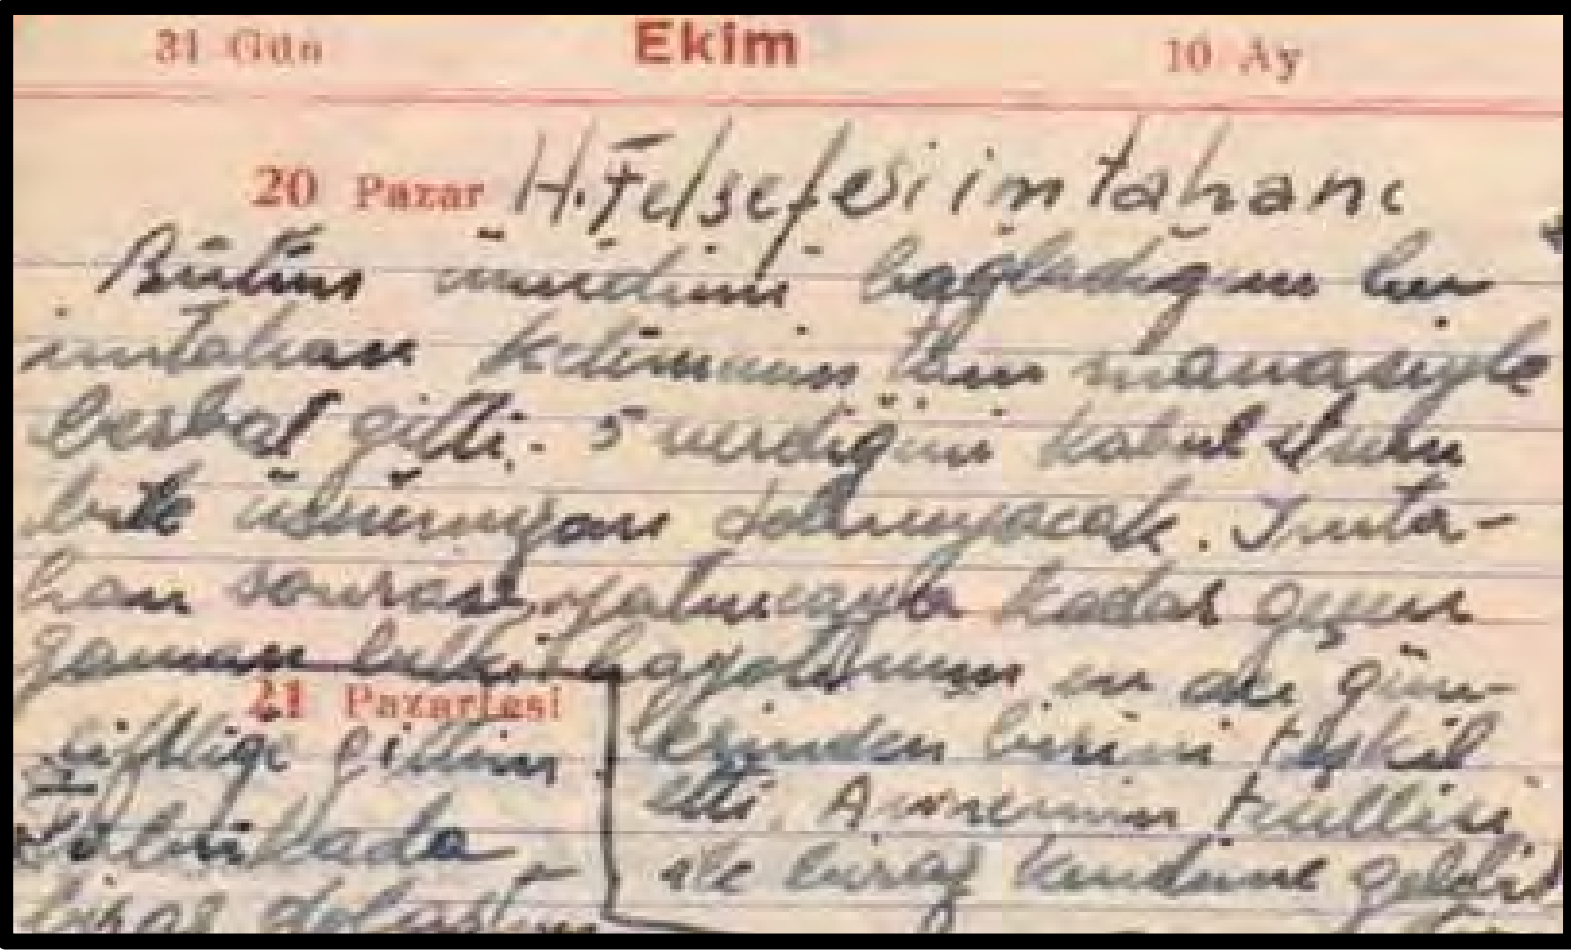 31 Gün Ekim 10 Ay
20 Pazar H. Felsefesi imtahanı
Bütün ümidimi bağladığım bir
imtahan kelimenin tam manasiyle
berbat gitti. 5 verdiğini kabul etsem
bile dolmıyacak. Imta-
han sonrası yatıncaya kadar geçen
zaman belki hayatımın en acı gün-
lerinden birini teşkil
etti. Annemin tesellisi
ile biraz kendime geldim
21 Pazartesi
çiftliğe gittim
biraz dolaştım